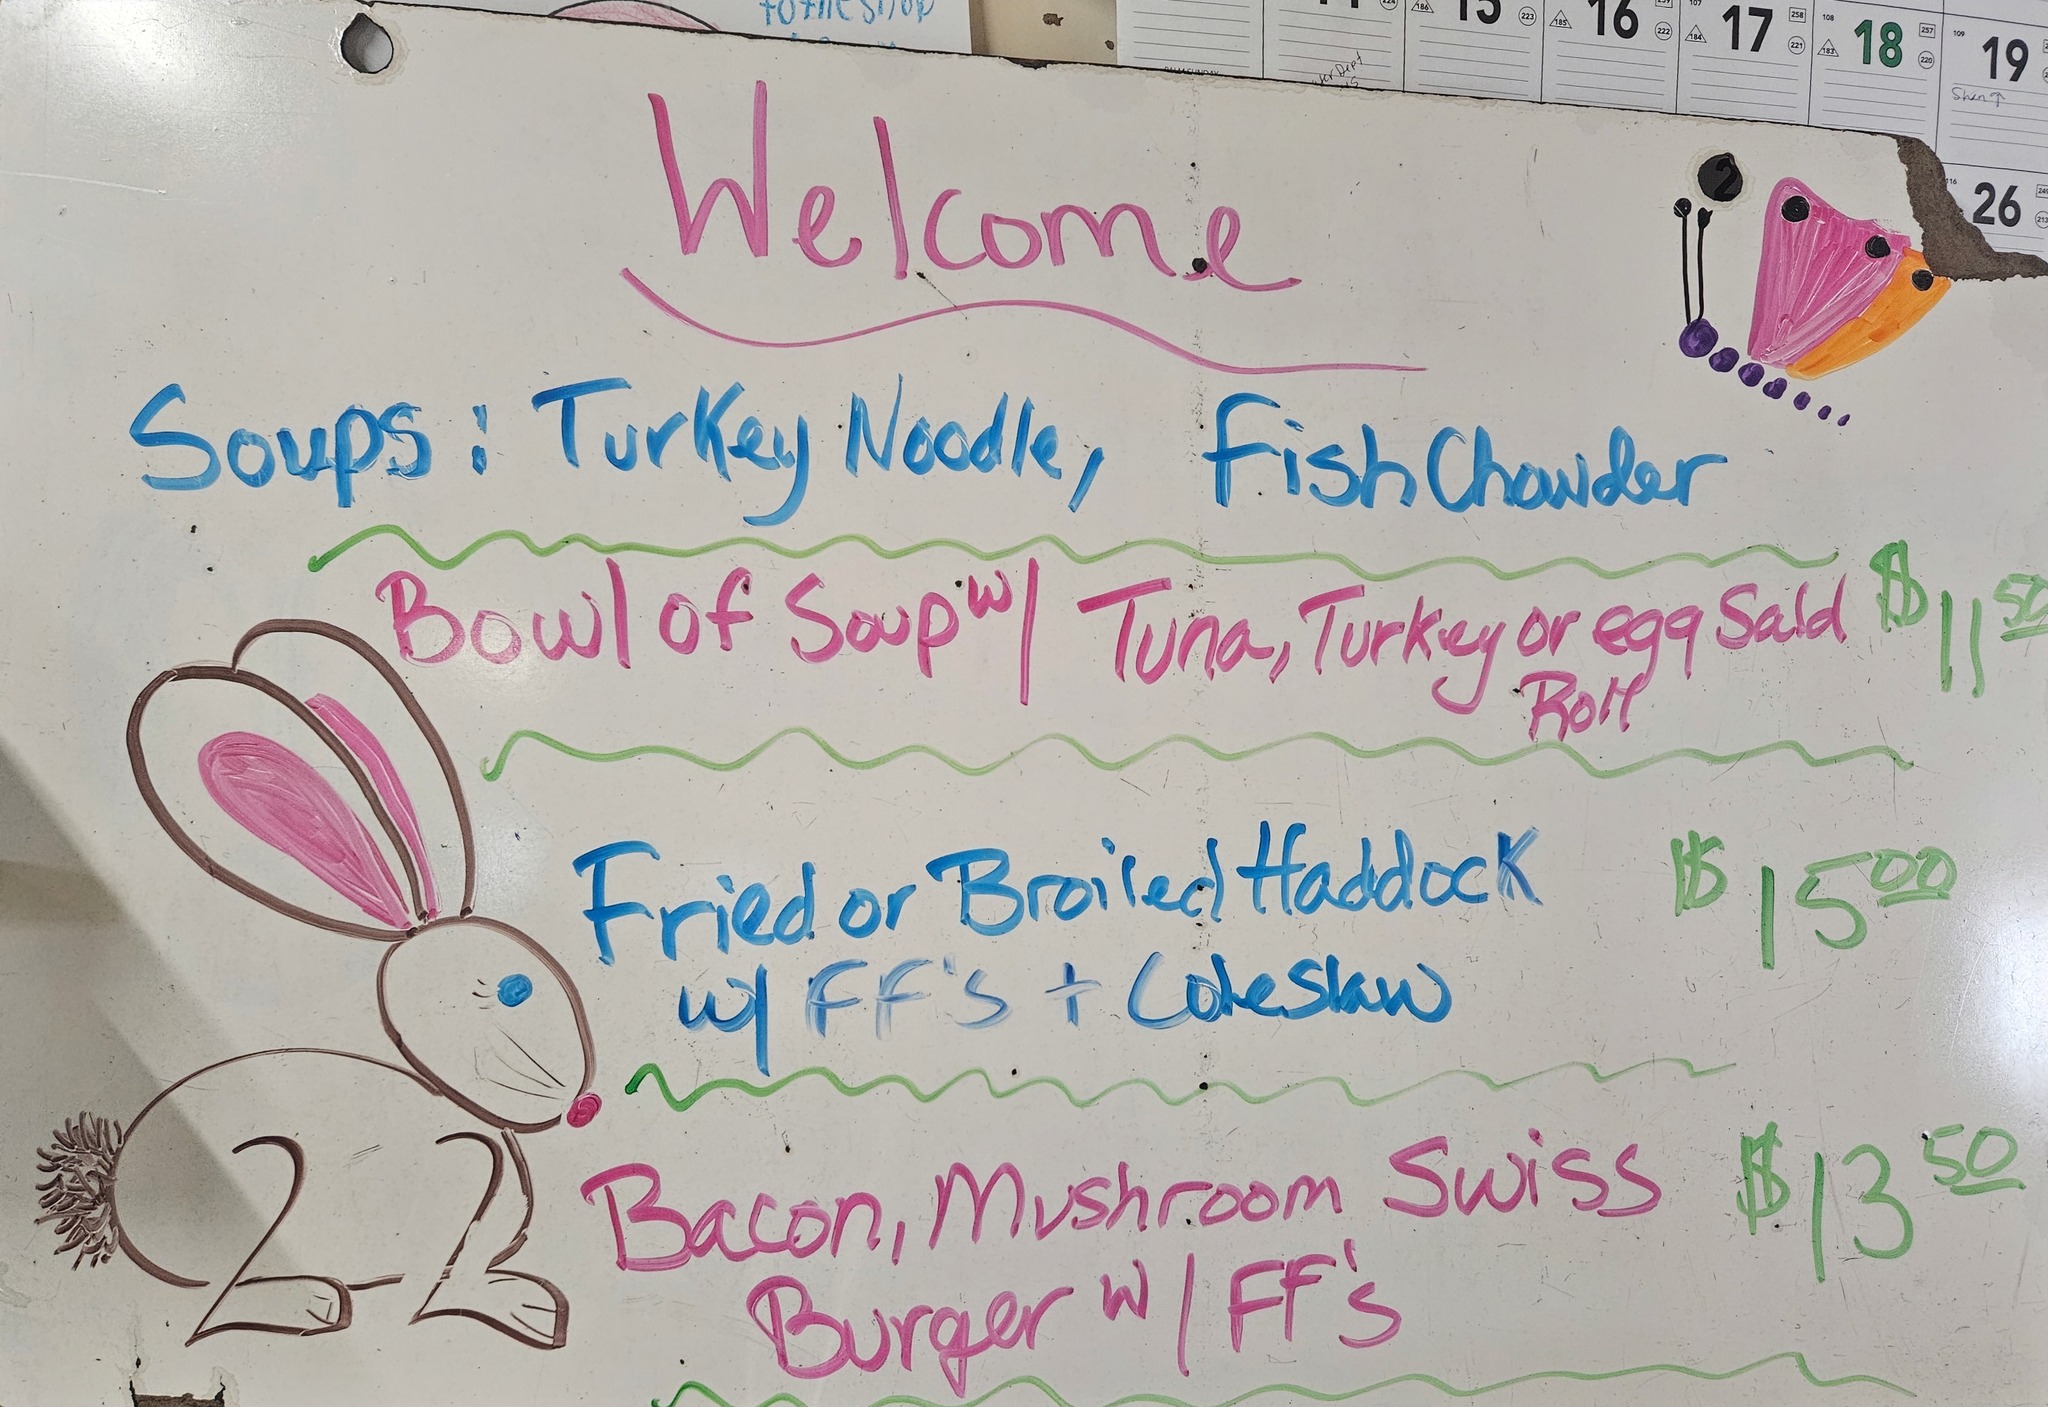 to the shop
15 16 17 18 19
PALM SUNDAY
26
2
Welcome
Soups: Turkey Noodle, Fish Chowder
Bowl of Soup w/ Tuna, Turkey or egg Sald $11 50
Roll
Fried or Broiled Haddock $15 00
w/ FF's + Coleslaw
Bacon, Mushroom Swiss $13 50
Burger w/ FF's